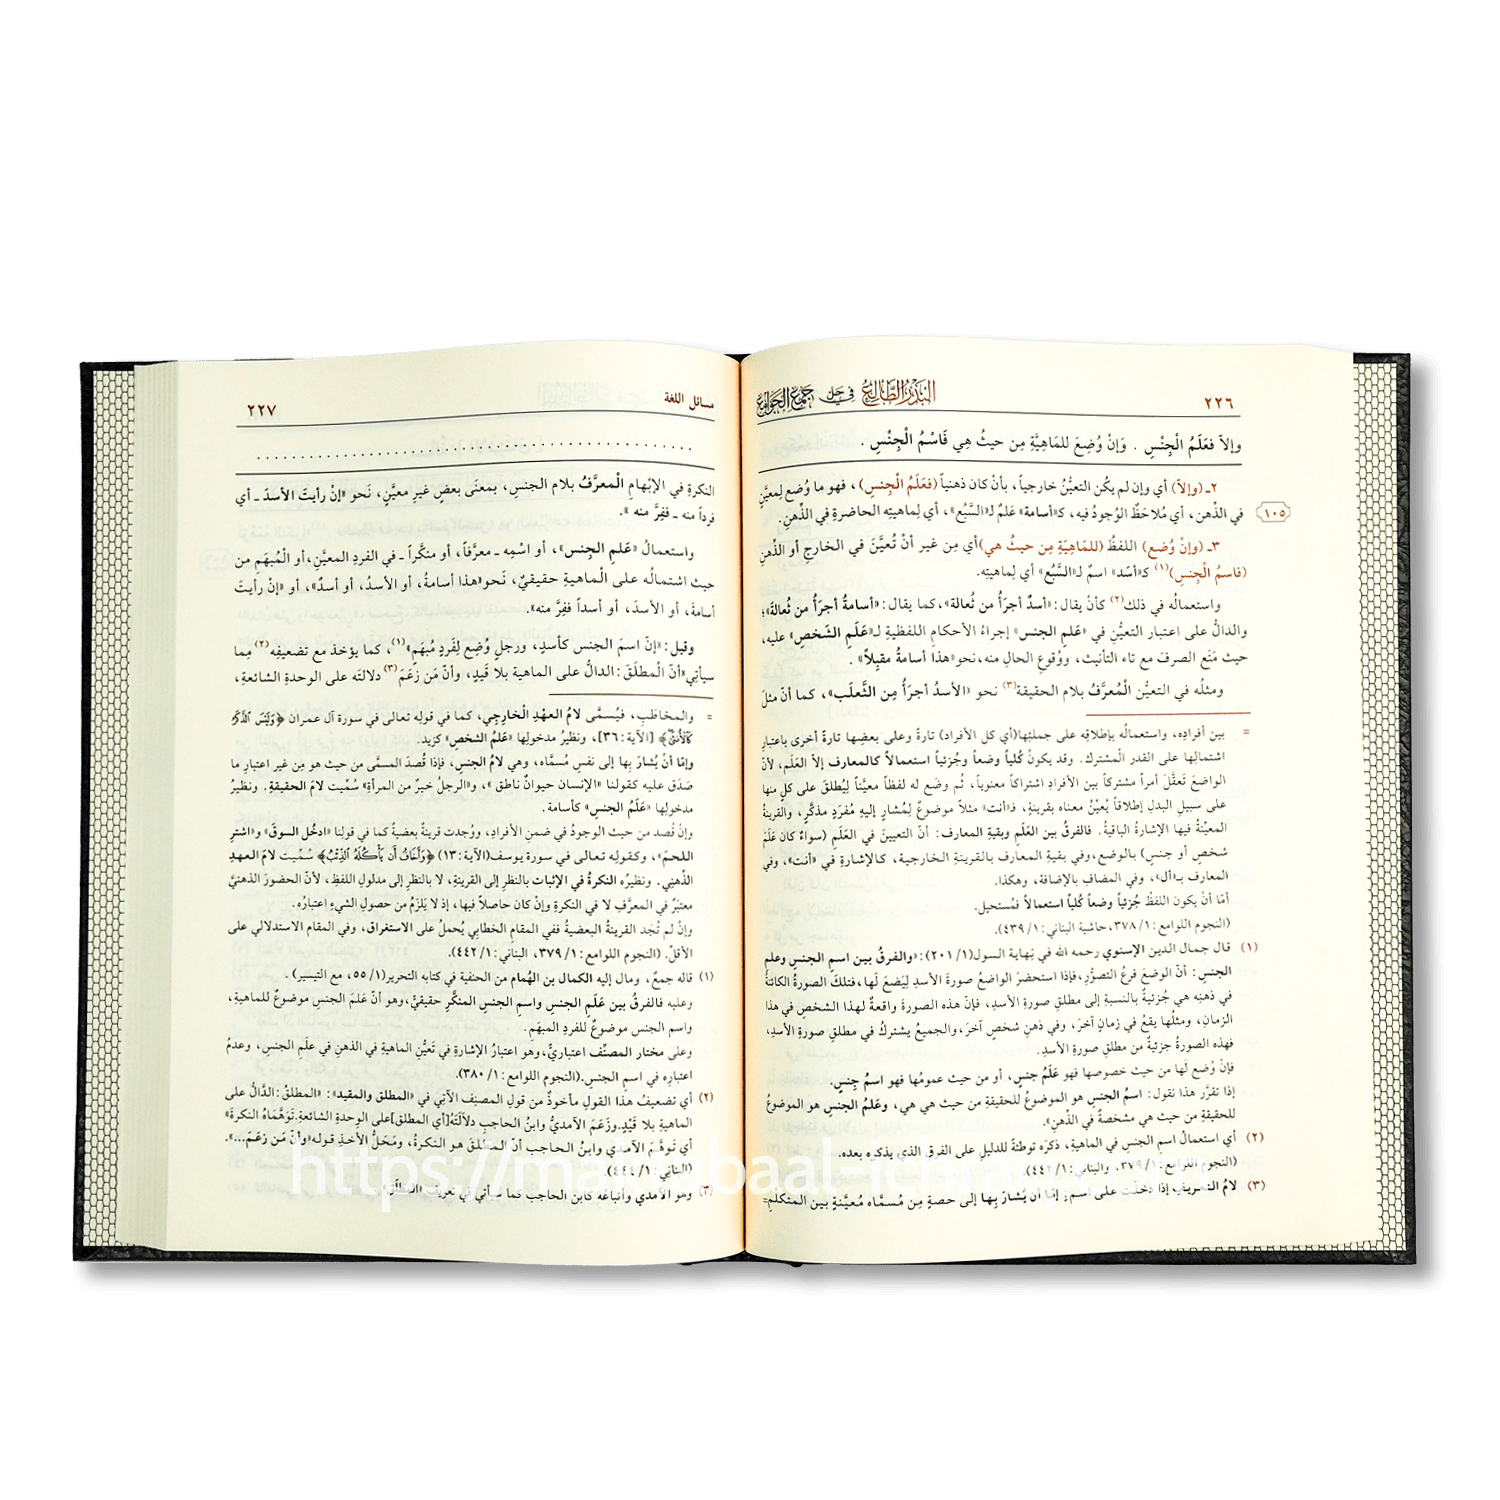 ٢٢٦
البدر الطالع في حل جمع الجوامع
وإلاّ فعَلَمُ الْجِنْسِ . وَإنْ وُضِعَ للمَاهِيَّةِ مِن حيثُ هِي فَاسْمُ الْجِنْسِ .
٢ـ (وإلاّ) أي وإن لم يكُن التعيُّنُ خارجياً، بأنْ كان ذهنياً (فعَلَمُ الْجِنسِ) ، فهو ما وُضع لِمعيَّنٍ
في الذْهن، أي مُلاحَظُ الوُجودُ فيه، كـ«أسامة» عَلمٌ لـ«السَّبُعِ»، أي لِماهيتِه الحاضرةِ في الذْهنِ.
١٠٥
٣ـ (وإنْ وُضع) اللفظُ (للمَاهِيَّةِ مِن حيثُ هي)أي مِن غير أنْ تُعيَّنَ في الخارج أو الذْهنِ
(فاسمُ الْجِنسِ)(١) كـ«أسَد» اسمٌ لـ«السَّبُع» أي لِماهيتِه.
واستعمالُه في ذلك(٢) كأنْ يقال: «أسدٌ أجرَأُ من ثُعالة»، كما يقال: «أسامةُ أجرَأُ من ثُعالةَ»؛
والدالُّ على اعتبار التعيُّنِ في «عَلمِ الجنس» إجراءُ الأحكامِ اللفظيةِ لـ«عَلَمِ الشَّخصِ» عليه،
حيث مَنَع الصرفَ مع تاء التأنيث، ووُقوعِ الحالِ منه، نحو«هذا أسامةُ مقبِلاً» .
ومثلُه في التعيُّن الْمُعرَّفُ بلام الحقيقة(٣) نحو «الأسدُ أجرَأُ مِن الثَّعلَب»، كما أنّ مثلَ
= بين أفرادِه، واستعمالُه بإطلاقِه على جملتِها(أي كل الأفراد) تارةً وعلى بعضِها تارةً أخرى باعتبارِ
اشتمالِها على القدر الْمشترك. وقد يكونُ كُلياً وضعاً وجُزئياً استعمالاً كالمعارف إلاّ العَلَم، لأنّ
الواضعَ تَعقَّلَ أمراً مشتركاً بين الأفرادِ اشتراكاً معنوياً، ثُم وضَع له لفظاً معيَّناً لِيُطلقَ على كلٍّ منها
على سبيلِ البدلِ إطلاقاً يُعيِّنُ معناه بقرينةٍ، فـ«أنت» مثلاً موضوعٌ لِمُشارٍ إليهِ مُفرَدٍ مذكَّرٍ، والقرينةُ
المعيِّنةُ فيها الإشارةُ الباقيةُ. فالفرقُ بين العَلَمِ وبقيةِ المعارف: أنّ التعيينَ في العَلَمِ (سواءٌ كان عَلَمَ
شخصٍ أو جنسٍ) بالوضع،وفي بقيةِ المعارف بالقرينة الخارجية، كالإشارةِ في «أنت»، وفي
المعارف بـ«أل»، وفي المضافِ بالإضافة، وهكذا.
أمّا أنْ يكون اللفظُ جُزئياً وضعاً كُلياً استعمالاً فمُستحيل.
(النجوم اللوامع: ٣٧٨/١، حاشية البناني: ٤٣٩/١).
(١) قال جمال الدين الإسنوي رحمه الله في نِهاية السول(٢٠١/١): «والفرقُ بين اسمِ الجنسِ وعلمِ
الجنسِ: أنّ الوضعَ فرعُ التصوُّرِ،فإذا استحضرَ الواضعُ صورةَ الأسدِ لِيَضعَ لَها،فتلكَ الصورةُ الكائنةُ
في ذهنِه هي جُزئيةٌ بالنسبةِ إلى مطلقِ صورةِ الأسدِ، فإنّ هذه الصورةَ واقعةٌ لِهذا الشخصِ في هذا
الزمانِ، ومثلُها يقعُ في زمانٍ آخرَ، وفي ذهنِ شخصٍ آخرَ،والجميعُ يشتركُ في مطلقِ صورةِ الأسدِ،
فهذه الصورةُ جزئيةٌ من مطلقِ صورةِ الأسدِ.
فإنْ وُضع لَها من حيث خصوصها فهو عَلَمُ جنسٍ، أو من حيث عمومُها فهو اسمُ جِنسٍ.
إذا تقرَّر هذا نقول: اسمُ الجنسِ هو الموضوعُ للحقيقةِ من حيث هي هي، وعَلمُ الجنسِ هو الموضوعُ
للحقيقةِ من حيث هي مشخصةٌ في الذْهنِ».
(٢) أي استعمالُ اسمِ الجنسِ في الماهيةِ، ذكرَه توطئةً للدليل على الفرقِ الذي يذكره بعده.
(النجوم اللوامع: ٣٧٩/١، والبناني: ٤٤٢/١).
(٣) لامُ التعريفِ إذا دخلَت على اسمٍ، إمّا أن يُشارَ بِها إلى حصةٍ مِن مُسمَّاه مُعيَّنةٍ بين المتكلِّمِ=
مسائل اللغة
٢٢٧
. . . . . . . . . . . . . . . . . . . . . . . .
. . . . . . . . . . . . . . . . . . . . . . . .
النكرةِ في الإبْهامِ الْمعرَّفُ بلام الجنسِ، بمعنَى بعضٍ غيرِ معيَّنٍ، نَحو «إنْ رأيتَ الأسدّ ـ أي
فرداً منه ـ ففِرَّ منه ».
واستعمالُ «عَلمِ الجِنس»، أو اسْمِه ـ معرَّفاً، أو منكَّراً ـ في الفردِ المعيَّنِ،أو الْمُبهَمِ من
حيث اشتمالُه على الْماهيةِ حقيقيٌّ، نَحو«هذا أسامةُ، أو الأسدُ، أو أسدٌ»، أو «إنْ رأيتَ
أسامةَ، أو الأسدَ، أو أسداً ففِرَّ منه».
وقيل: «إنّ اسمَ الجنس كأسدٍ، ورجلٍ وُضِع لِفَردٍ مُبهَمٍ»(١)، كما يؤخذ مع تضعيفِه(٢) مِما
سيأتِي«أنّ الْمطلَقَ: الدالُّ على الماهية بلا قَيدٍ، وأنّ مَن زعَمَ(٣) دلالتَه على الوحدةِ الشائعةِ،
= والمخاطَبِ، فيُسمَّى لامُ العهْدِ الْخارجِي، كما في قولِه تعالى في سورة آل عمران ﴿وَلَيْسَ الذَّكَرُ
كَالْأُنثَىٰ﴾ [الآية: ٣٦]، ونظيرُ مدخولِها «عَلمُ الشخصِ» كزيد.
وإمّا أنْ يُشارَ بِها إلى نفسِ مُسمَّاه، وهي لامُ الجنسِ، فإذا قُصدَ المسمَّى من حيث هو مِن غير اعتبارِ ما
صَدَق عليه كقولنا «الإنسان حيوانٌ ناطق »، و«الرجلُ خيرٌ من المرأةِ» سُمِّيت لامُ الحقيقةِ. ونظيرُ
مدخولِها «عَلَمُ الجنسِ» كأسامة.
وإنْ قُصد من حيث الوجودُ في ضمن الأفرادِ، ووُجدت قرينةٌ بعضيةٌ كما في قولنا «ادخُل السوقَ» و«اشترِ
اللحمَ»، وكقولِه تعالى في سورة يوسف(الآية: ١٣) ﴿وَأَخَافُ أَن يَأْكُلَهُ الذِّئْبُ﴾ سُمِّيت لامُ العهدِ
الذِّهنِي. ونظيرُه النكرةُ في الإثباتِ بالنظرِ إلى القرينةِ، لا بالنظرِ إلى مدلولِ اللفظِ، لأنّ الحضورَ الذهنيَّ
معتبَرٌ في المعرَّفِ لا في النكرةِ وإنْ كان حاصلاً فيها، إذ لا يَلزمُ من حصولِ الشيءِ اعتبارُه.
وإنْ لم تُجَد القرينةُ البعضيةُ ففي المقامِ الخطابِي يُحملُ على الاستغراقِ، وفي المقامِ الاستدلالي على
الأقلِّ. (النجوم اللوامع: ٣٧٩/١، البناني: ٤٤٢/١).
(١) قاله جمعٌ، ومال إليه الكمال بن الهُمام من الحنفية في كتابه التحرير(٥٥/١، مع التيسير) .
وعليه فالفرقُ بين عَلَمِ الجنسِ واسمِ الجنسِ المنكَّرِ حقيقيٌّ،وهو أنّ عَلمَ الجنسِ موضوعٌ للماهيةِ،
واسم الجنس موضوعٌ للفردِ المبهَمِ.
وعلى مختارِ المصنِّف اعتباريٌّ،وهو اعتبارُ الإشارةِ في تَعيُّنِ الماهيةِ في الذهنِ في علَمِ الجنسِ، وعدمُ
اعتبارِه في اسمِ الجنسِ.(النجوم اللوامع: ٣٨٠/١).
(٢) أي تضعيفُ هذا القولِ مأخوذٌ من قولِ المصنِّفِ الآتِي في «المطلق والمقيد»: «المطلقُ: الدَّالُّ على
الماهيةِ بلا قَيْدٍ.وزَعَمَ الآمديُّ وابنُ الحاجبِ دلالَتَه(أي المطلق)على الوحدةِ الشائعةِ.توَهَّمَاهُ النكرةَ»
أي تَوهَّمَ الآمدي وابنُ الحاجب أنّ المطلقَ هو النكرةُ، ومَحَلُّ الأخذِ قوله«وأنّ مَن زعَمَ...».
(البناني: ٤٤٤/١).
(٣) وهو الآمدي وأتباعُه كابن الحاجب كما سيأتي في تعريف «المطلَق»